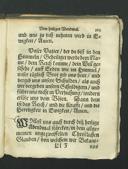 Vom heiligen Abendmal.
und uns zu dir nehmen wird in E-
wigkeit, Amen.
Vnser Vatter, der du bist in den
Himmeln, Geheiliget werde dein Na-
me, dein Reich komme, dein Will ge-
schehe auf Erden wie im Himmel,
unser täglich Brot gib uns heut, und
vergib uns unsere Schulden, als auch
wir vergeben unsern Schuldigern,
führe uns nicht in Versuchung, sondern
erlöse uns von dem Bösen. Dann dein
ist das Reich, und die Krafft, und die
Herrligkeit in Ewigkeit, Amen.
uns auch durch diß heilige
Abendmal stärcken, in dem allge-
meinen ungezweiffelten Christlichen
Glauben,